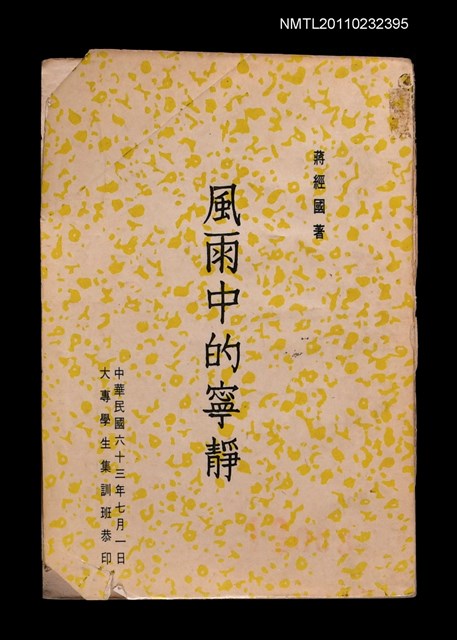 NMTL20110232395
蔣經國著
風雨中的寧靜
中華民國六十三年七月一日
大專學生集訓班恭印